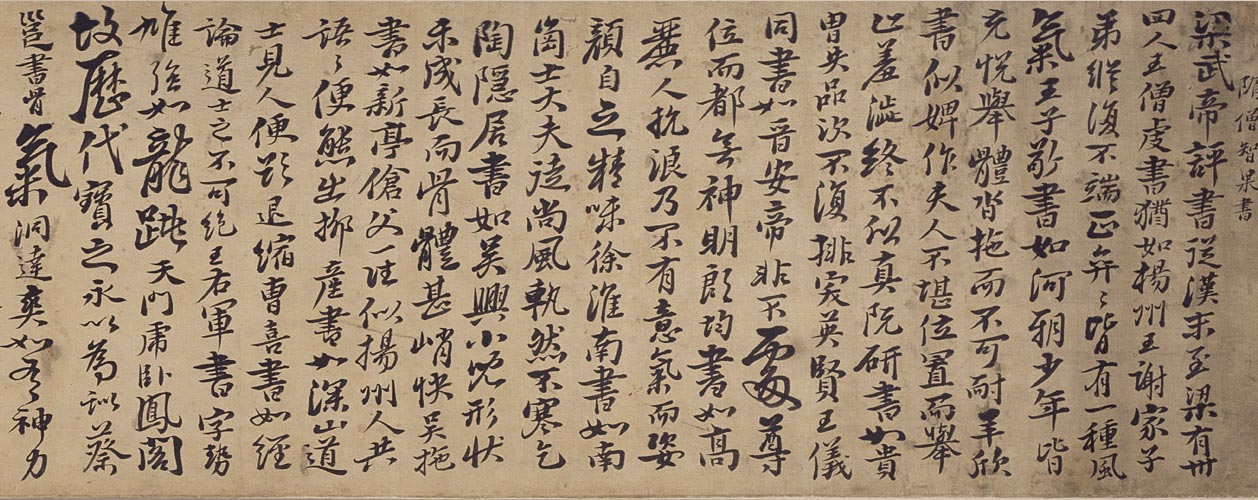 隋僧智果書
梁武帝評書從漢末至梁有卅
四人王僧虔書猶如楊州王謝家子
弟縱復不端正奕〻皆有一種風
氣王子敬書如河朔少年皆
充悅舉體沓拖而不可耐羊欣
書似婢作夫人不堪位置而舉
止羞澁終不似真阮研書如貴
冑失品次不復排突英賢王儀
同書如晉安帝非不處尊
位而都無神明郎均書如高
麗人抗浪乃不有意氣而姿
顏自乏精味徐淮南書如南
崗士大夫徒尚風軌然不寒乞
陶隱居書如吳興小兒形狀
未成長而骨體甚峭快吳施
書如新亭傖父一往似揚州人共
語〻便態出柳產書如深山道
士見人便欲退縮曹喜書如經
論道士之不可絕王右軍書字勢
雄強如龍跳天門虎臥鳳閣
故歷代寶之永以為訓蔡
邕書骨氣洞達爽如有神力